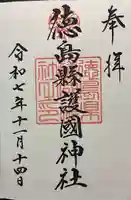 奉拝
徳島縣護國神社
令和七年十一月十四日